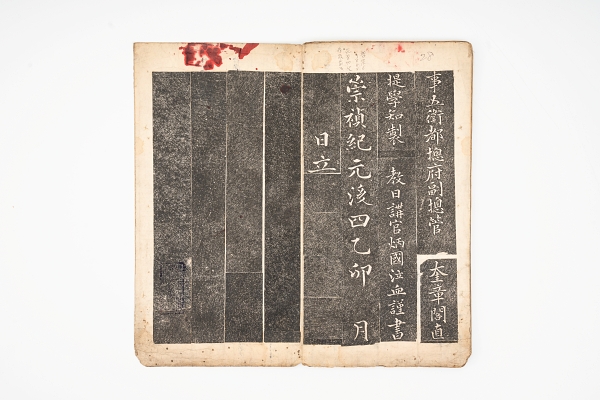 事五衛都摠府副摠管 奎章閣直
提學知製 教日講官炳國泣血謹書
崇禎紀元後四乙卯 月
日立